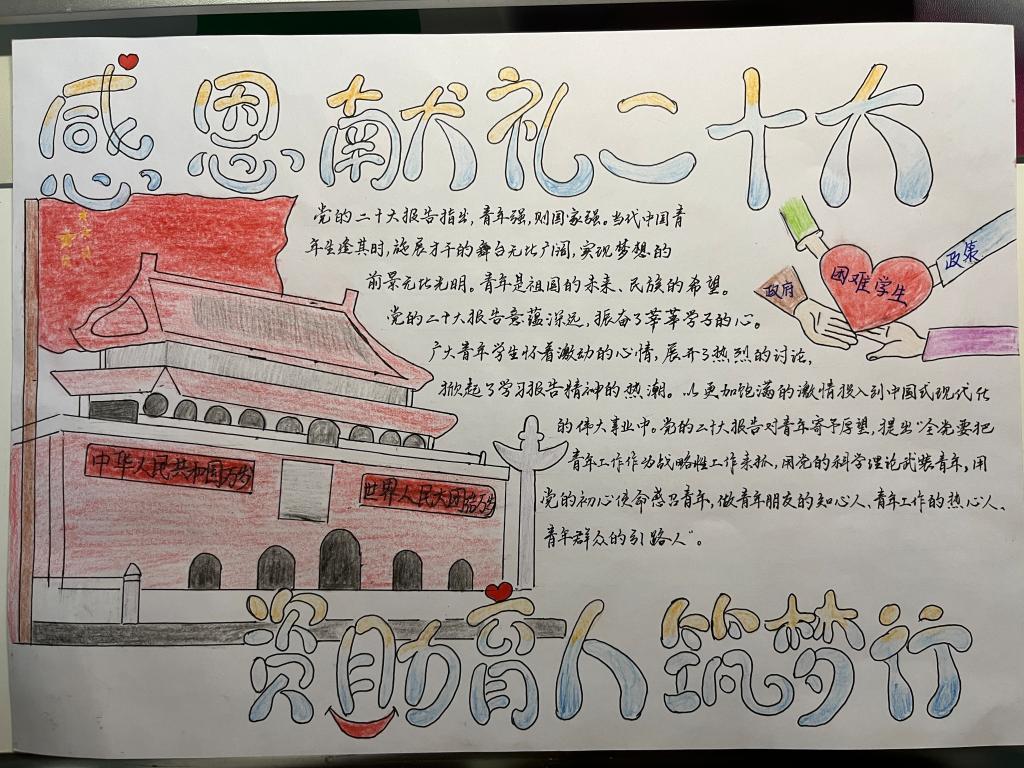 感恩献礼二十大
党的二十大报告指出，青年强，则国家强。当代中国青
年生逢其时，施展才干的舞台无比广阔，实现梦想的
前景无比光明。青年是祖国的未来、民族的希望。
党的二十大报告意蕴深远，振奋了莘莘学子的心。
广大青年学生怀着激动的心情，展开了热烈的讨论，
掀起了学习报告精神的热潮。以更加饱满的激情投入到中国式现代化
的伟大事业中。党的二十大报告对青年寄予厚望，提出“全党要把
青年工作作为战略性工作来抓，用党的科学理论武装青年，用
党的初心使命感召青年，做青年朋友的知心人、青年工作的热心人、
青年群众的引路人”。
困难学生
政策
政府
中华人民共和国万岁
世界人民大团结万岁
资助育人筑梦行